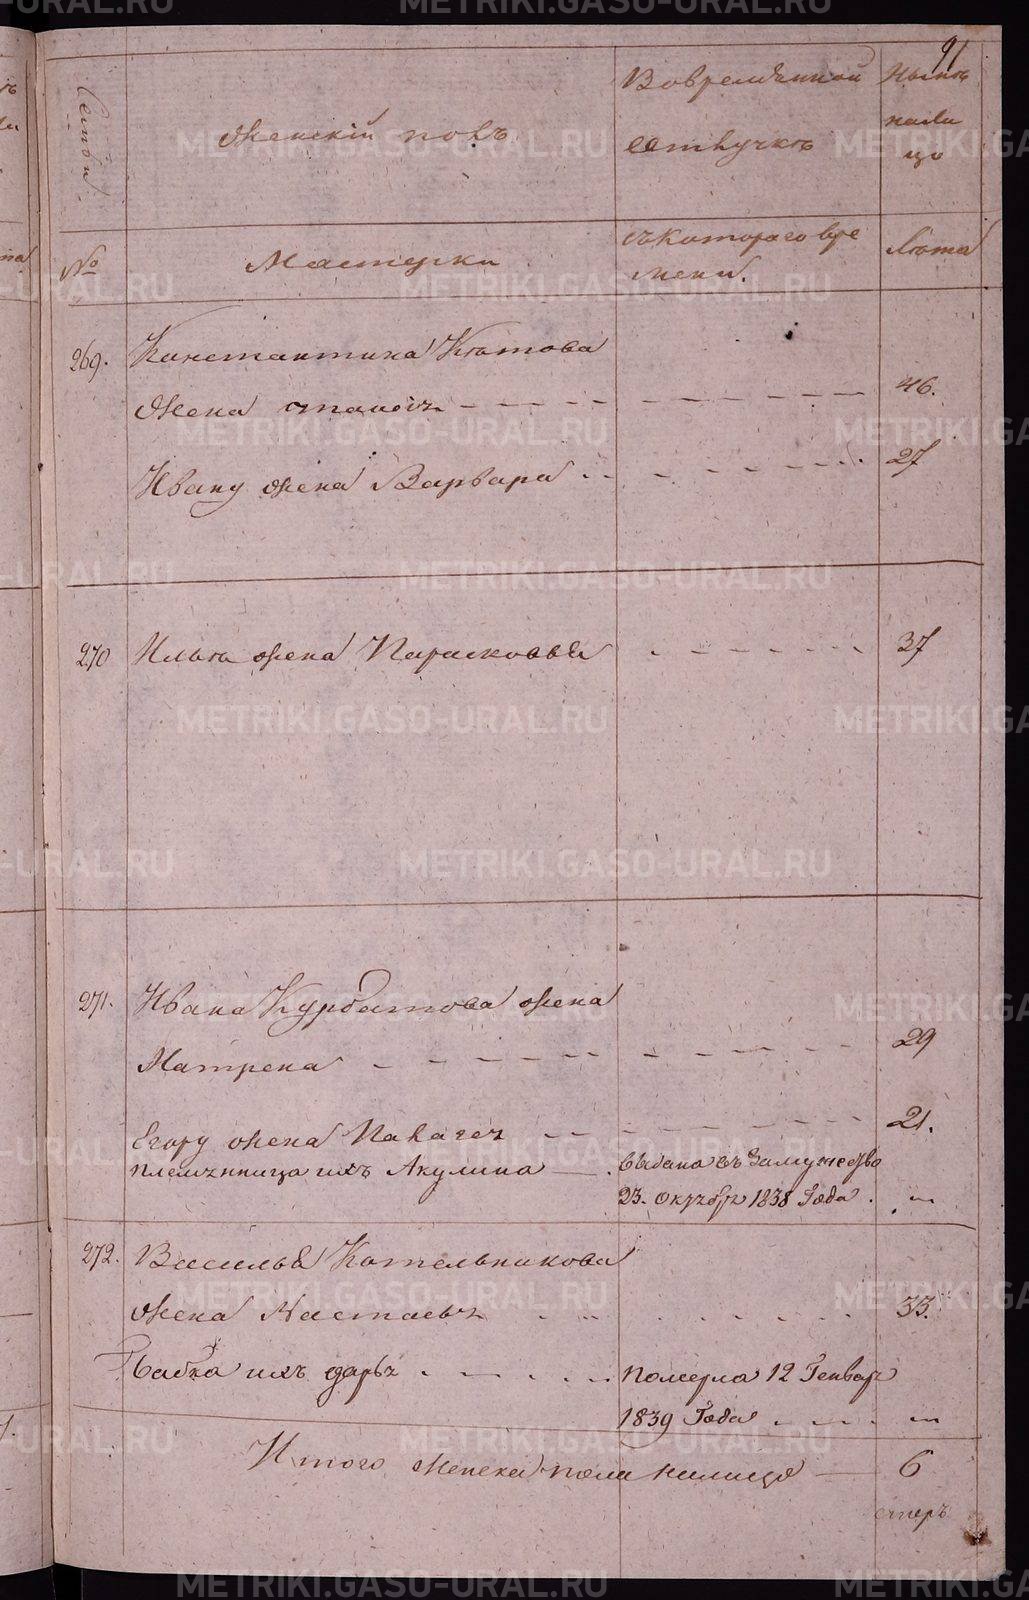 91
Семьи
Женскій полъ
Во временной
отлучкѣ
Нынѣ
на ли
цо
№
Мастерки
съ Котораго вре
мени.
Лѣта
269.
Константина Кротова
Жена
46.
Ивану жена Варвара
27
270
Илью жена Парасковья
37
271.
Ивана Курбатова жена
Матрена
29
Егору жена Палагея
21.
племянница ихъ Акулина
выдана въ замужство
23. октября 1838 Года.
272.
Василья Котельникова
жена Настасья
33.
бабка ихъ дарья
померла 12 Генваря
1839 Года
Итого женска пола налицо
6
METRIKI.GASO-URAL.RU